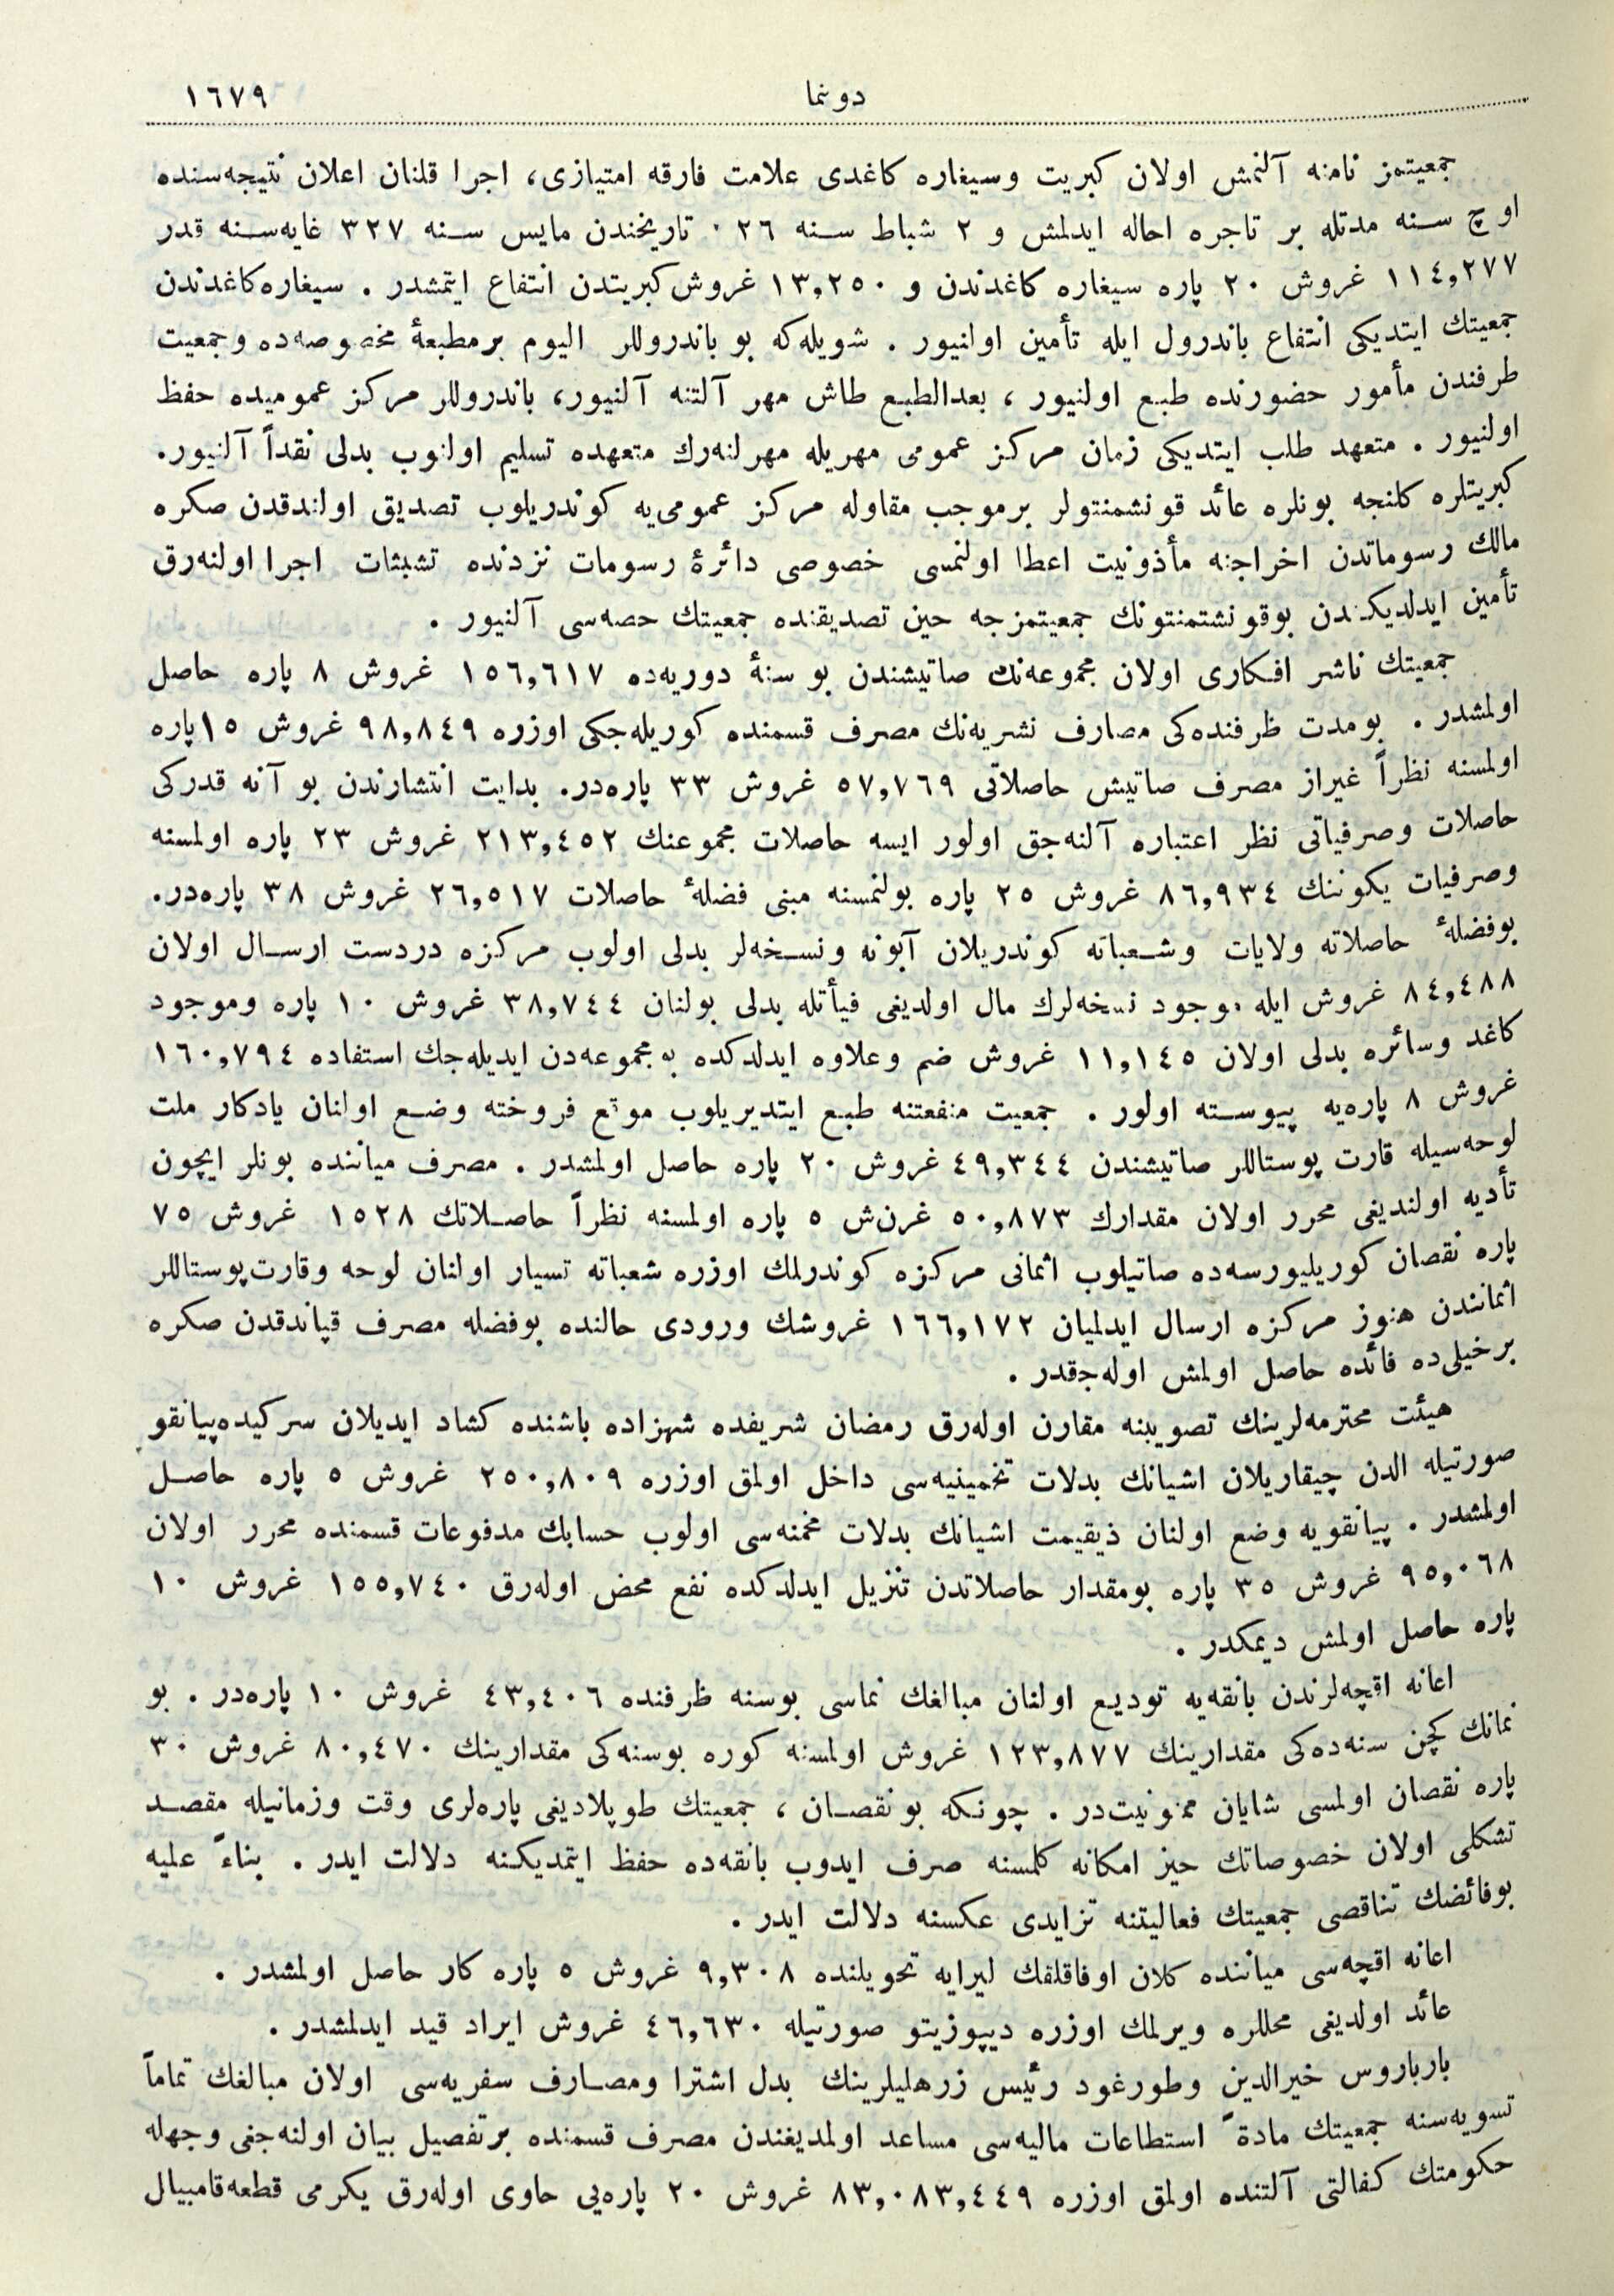 دونما
١٦٧٩
جمعيتمز نامنه آلنمش اولان كبريت وسيغاره كاغدى علامت فارقه امتيازى، اجرا قلنان اعلان نتيجه‌سنده
اوچ سنه مدتله بر تاجره احاله ايدلمش و ٢ شباط سنه ٢٦٠ تاريخندن مايس سنه ٣٢٧ غايه‌سنه قدر
١١٤,٢٧٧ غروش ٢٠ پاره سيغاره كاغدندن و ١٣,٢٥٠ غروش كبريتدن انتفاع ايتمشدر . سيغاره كاغدندن
جمعيتك ايتديكى انتفاع باندرول ايله تأمين اولنيور . شويله‌كه بو باندروللر اليوم بر مطبعۀ مخصوصه‌ده وجمعيت
طرفندن مأمور حضورنده طبع اولنيور ، بعدالطبع طاش مهر آلتنه آلنيور، باندروللر مركز عموميده حفظ
اولنيور . متعهد طلب ايتديكى زمان مركز عمومى مهريله مهرلنه‌رك متعهده تسليم اولنوب بدلى نقداً آلنيور.
كبريتلره كلنجه بونلره عائد قونشمنتولر برموجب مقاوله مركز عمومى‌يه كوندريلوب تصديق اولندقدن صكره
مالك رسوماتدن اخراجنه مأذونيت اعطا اولنمسى خصوصى دائرۀ رسومات نزدنده تشبثات اجرا اولنه‌رق
تأمين ايدلديكندن بوقونشتمنتونك جمعيتمزجه حين تصديقنده جمعيتك حصه‌سى آلنيور .
جمعيتك ناشر افكارى اولان مجموعه‌نك صاتيشندن بو سنۀ دوريه‌ده ١٥٦,٦١٧ غروش ٨ پاره حاصل
اولمشدر . بومدت ظرفنده‌كى مصارف نشريه‌نك مصرف قسمنده كوريله‌جكى اوزره ٩٨,٨٤٩ غروش ١٥ پاره
اولمسنه نظراً غيراز مصرف صاتيش حاصلاتى ٥٧,٧٦٩ غروش ٣٣ پاره‌در. بدايت انتشارندن بو آنه قدركى
حاصلات وصرفياتى نظر اعتباره آلنه‌جق اولور ايسه حاصلات مجموعنك ٢١٣,٤٥٢ غروش ٢٣ پاره اولمسنه
وصرفيات يكوننك ٨٦,٩٣٤ غروش ٢٥ پاره بولنمسنه مبنى فضلۀ حاصلات ٢٦,٥١٧ غروش ٣٨ پاره‌در.
بوفضلۀ حاصلاته ولايات وشعباته كوندريلان آبونه ونسخه‌لر بدلى اولوب مركزه دردست ارسال اولان
٨٤,٤٨٨ غروش ايله موجود نسخه‌لرك مال اولديغى فيأتله بدلى بولنان ٣٨,٧٤٤ غروش ١٠ پاره وموجود
كاغد وسائره بدلى اولان ١١,١٤٥ غروش ضم وعلاوه ايدلدكده مجموعه‌دن ايديله‌جك استفاده ١٦٠,٧٩٤
غروش ٨ پاره‌يه پيوسته اولور . جمعيت منفعتنه طبع ايتديريلوب موقع فروخته وضع اولنان يادكار ملت
لوحه‌سيله قارت پوستاللر صاتيشندن ٤٩,٣٤٤ غروش ٢٠ پاره حاصل اولمشدر . مصرف مياننده بونلر ايچون
تأديه اولنديغى محرر اولان مقدارك ٥٠,٨٧٣ غرن‌ش ٥ پاره اولمسنه نظراً حاصلاتك ١٥٢٨ غروش ٧٥
پاره نقصان كوريليورسه‌ده صاتيلوب اثمانى مركزه كوندرلمك اوزره شعباته تسيار اولنان لوحه وقارت‌پوستاللر
اثماننندن هنوز مركزه ارسال ايدلميان ١٦٦,١٧٢ غروشك ورودى حالنده بوفضله مصرف قپاندقدن صكره
برخيلى‌ده فائده حاصل اولمش اوله‌جقدر .
هيئت محترمه‌لرينك تصويبنه مقارن اوله‌رق رمضان شريفده شهزاده باشنده كشاد ايديلان سركيده‌پيانقو
صورتيله الدن چيقاريلان اشيانك بدلات تخمينيه‌سى داخل اولمق اوزره ٢٥٠,٨٠٩ غروش ٥ پاره حاصل
اولمشدر . پيانقويه وضع اولنان ذيقيمت اشيانك بدلات مخمنه‌سى اولوب حسابك مدفوعات قسمنده محرر اولان
٩٥,٠٦٨ غروش ٣٥ پاره بومقدار حاصلاتدن تنزيل ايدلدكده نفع محض اوله‌رق ١٥٥,٧٤٠ غروش ١٠
پاره حاصل اولمش ديمكدر .
اعانه اقچه‌لرندن بانقه‌يه توديع اولنان مبالغك نماسى بوسنه ظرفنده ٤٣,٤٠٦ غروش ١٠ پاره‌در . بو
نمانك كچن سنه‌ده‌كى مقدارينك ١٢٣,٨٧٧ غروش اولمسنه كوره بوسنه‌كى مقدارينك ٨٠,٤٧٠ غروش ٣٠
پاره نقصان اولمسى شايان ممنونيت‌در . چونكه بو نقصان ، جمعيتك طوپلاديغى پاره‌لرى وقت وزمانيله مقصد
تشكلى اولان خصوصاتك حيز امكانه كلمسنه صرف ايدوب بانقه‌ده حفظ ايتمديكنه دلالت ايدر . بناءً عليه
بوفائضك تناقصى جمعيتك فعاليتنه تزايدى عكسنه دلالت ايدر .
اعانه اقچه‌سى مياننده كلان اوفاقلغك ليرايه تحويلنده ٩,٣٠٨ غروش ٥ پاره كار حاصل اولمشدر .
عائد اولديغى محللره ويرلمك اوزره ديپوزيتو صورتيله ٤٦,٦٣٠ غروش ايراد قيد ايدلمشدر .
بارباروس خيرالدين وطورغود رئيس زرهليلرينك بدل اشترا ومصارف سفريه‌سى اولان مبالغك تماماً
تسويه‌سنه جمعيتك مادةً استطاعات ماليه‌سى مساعد اولمديغندن مصرف قسمنده برتفصيل بيان اولنه‌جغى وجهله
حكومتك كفالتى آلتنده اولمق اوزره ٨٣,٠٨٣,٤٤٩ غروش ٢٠ پاره‌يى حاوى اوله‌رق يكرمى قطعه‌قامبيال